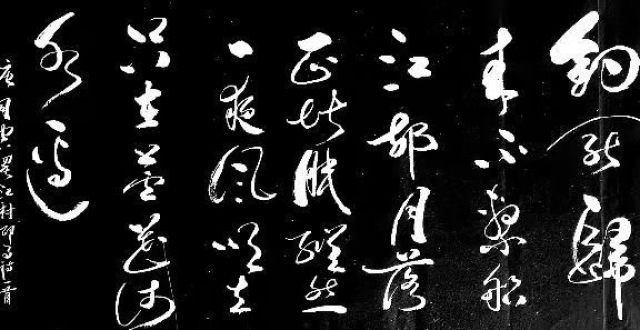 釣罷歸
来不繫船
江邨月落
正堪眠縱然
一夜風吹去
只在蘆花淺
水邊
唐司空曙江村即事詩一首